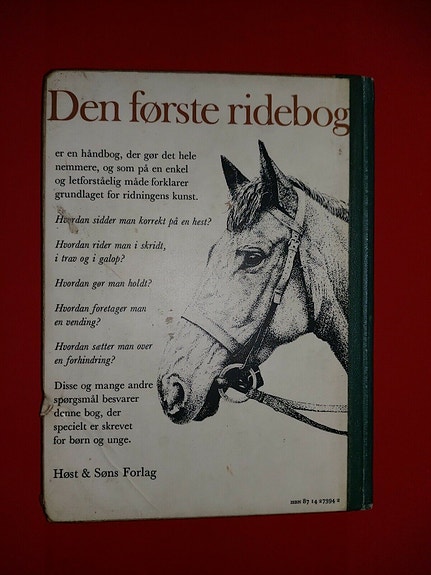 Den første ridebog
er en håndbog, der gør det hele
nemmere, og som på en enkel
og letforståelig måde forklarer
grundlaget for ridningens kunst.
Hvordan sidder man korrekt på en hest?
Hvordan rider man i skridt,
i trav og i galop?
Hvordan gør man holdt?
Hvordan foretager man
en vending?
Hvordan sætter man over
en forhindring?
Disse og mange andre
spørgsmål besvarer
denne bog, der
specielt er skrevet
for børn og unge.
Høst & Søns Forlag
ISBN 87 14 27394 2